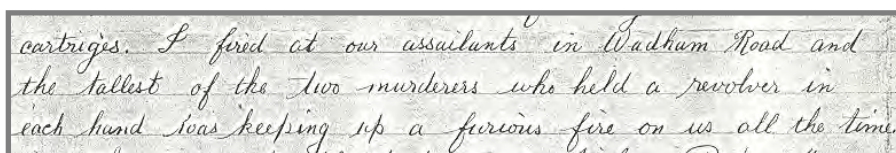 cartriges. I fired at our assailants in Wadham Road and
the tallest of the two murderers who held a revolver in
each hand was keeping up a furious fire on us all the time